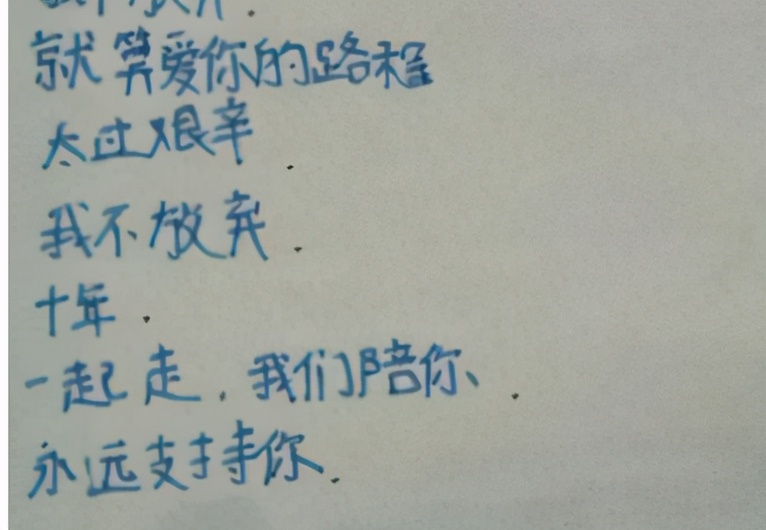 我不放弃.
就算爱你的路程
太过艰辛.
我不放弃.
十年.
一起走.我们陪你、.
永远支持你、.